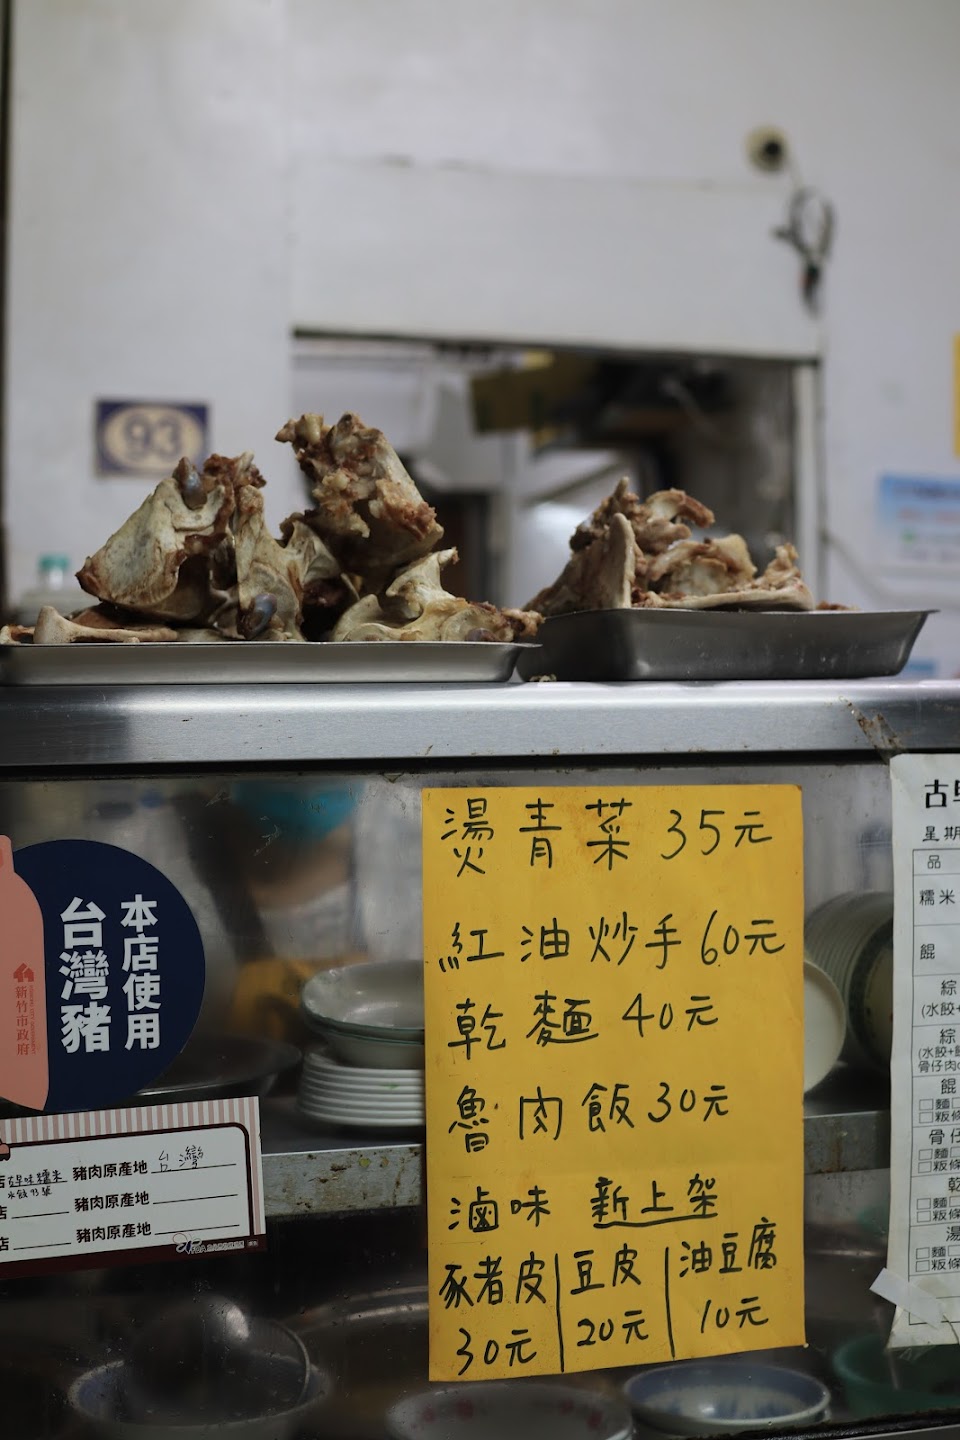 93
燙青菜35元
紅油炒手60元
乾麵40元
魯肉飯30元
滷味 新上架
豬皮 豆皮 油豆腐
30元 20元 10元
本店使用
台灣豬
新竹市政府
豬肉原產地 台灣
豬肉原產地
店 豬肉原產地
古
星期
品
糯米
餛
綜
(水餃+
綜
(水餃+餛
骨仔肉
餛
□麵□
□粄條
骨仔
□麵□
□粄條
乾
□麵□
□粄條
湯
□麵□
□粄條